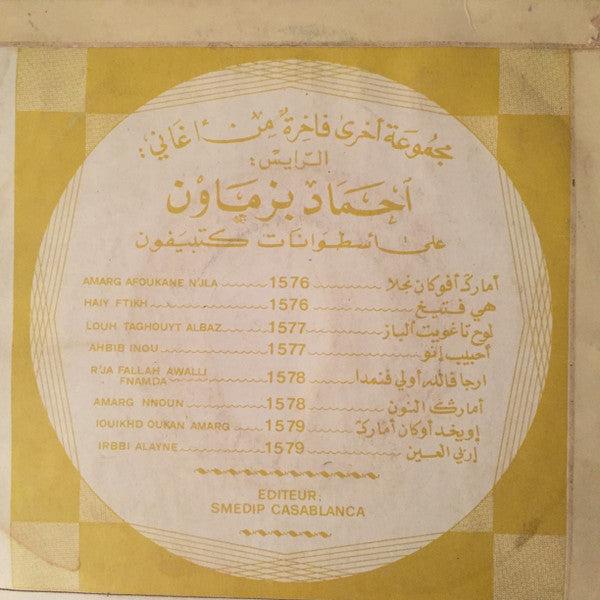 مجموعة أخرى فاخرة من أغاني :
الرايس :
أحماد بزماون
على أسطوانات كتبيفون
AMARG AFOUKANE N'JLA 1576 أمارك أفوكان نجلا
HAIY FTIKH 1576 هي فتيخ
LOUH TAGHOUYT ALBAZ 1577 لوح تاغويت الباز
AHBIB INOU 1577 أحبيب إنو
R'JA FALLAH AWALLI FNAMDA 1578 ارجا فالله أولي فنمدا
AMARG NNOUN 1578 أمارك النون
IOUIKHD OUKAN AMARG 1579 إويخد أوكان أمارك
IRBBI ALAYNE 1579 إربي العين
EDITEUR:
SMEDIP CASABLANCA